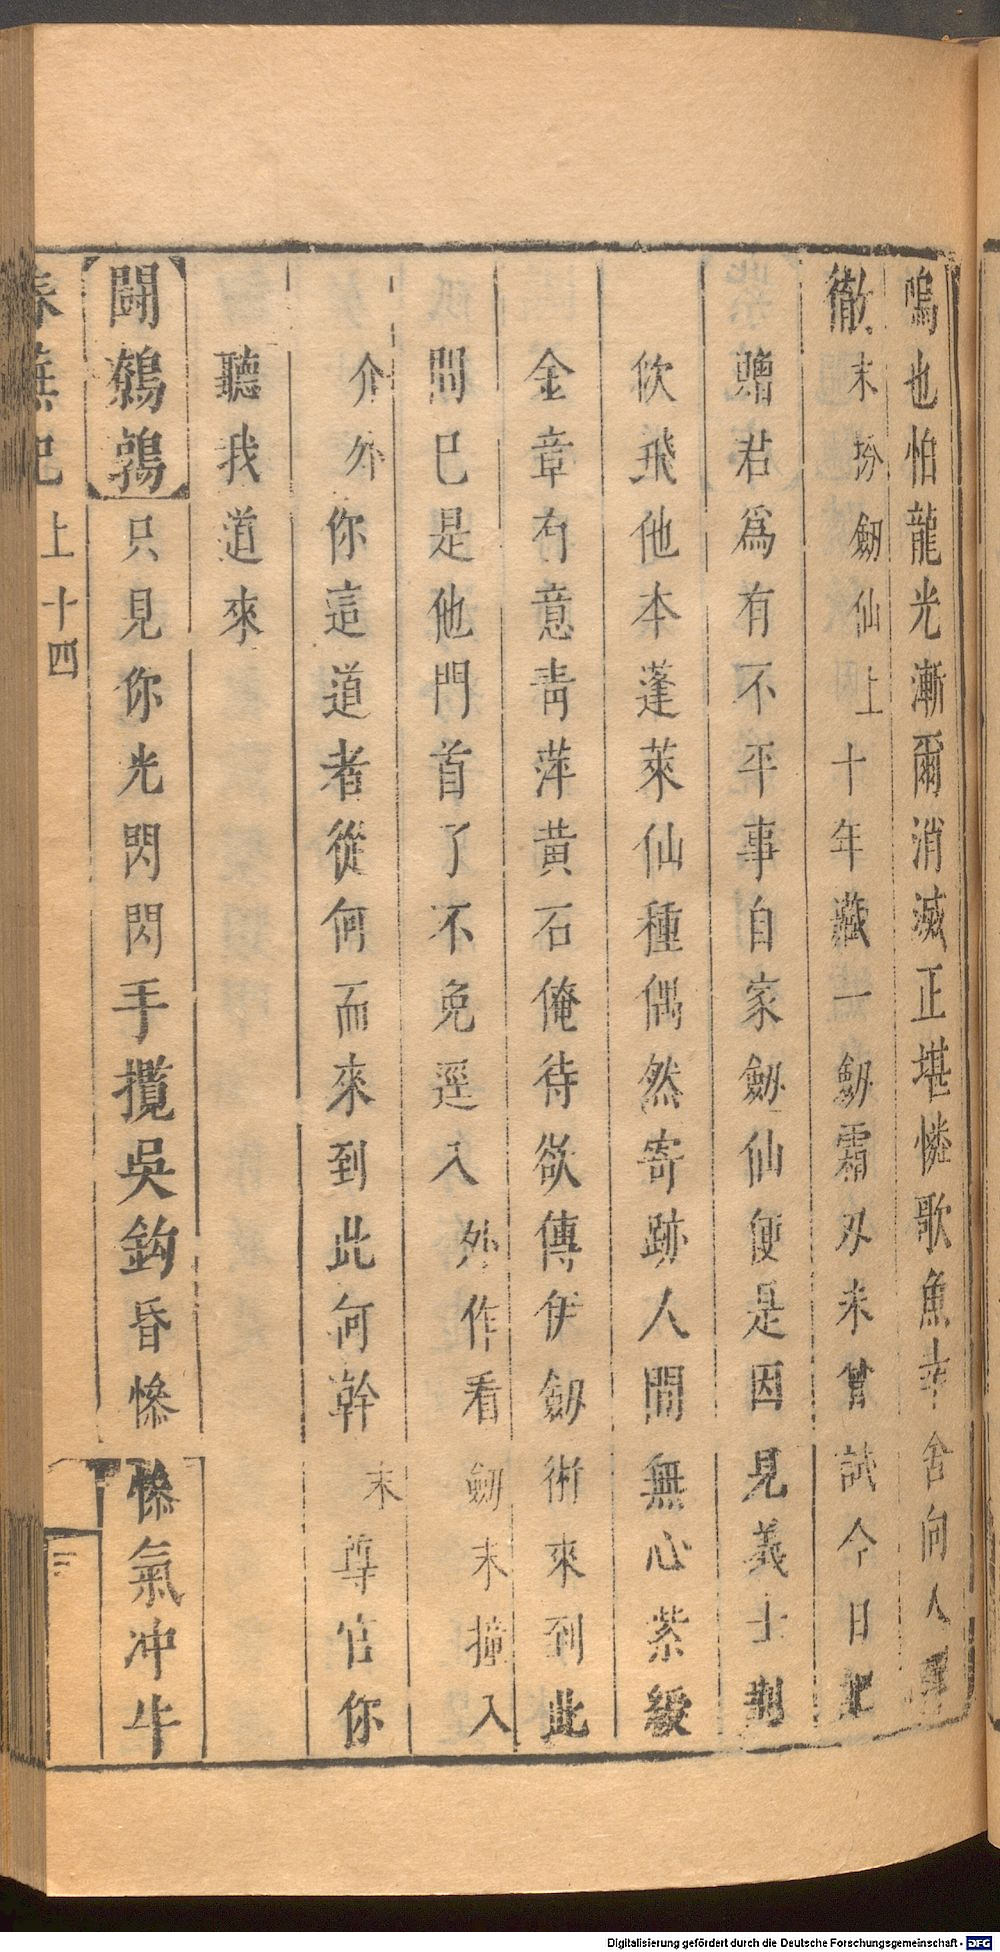 鳴也怕龍光漸爾消滅正堪憐歌魚幸舍向人彈
徹末扮劒仙上十年藏一劒霜刃未曾試今日把
贈君爲有不平事自家劒仙便是因見義士荆
佽飛他本蓬萊仙種偶然寄跡人間無心紫綬
金章有意靑萍黃石俺待欲傳伊劒術來到此
間已是他門首了不免逕入外作看劒末撞入
介外你這道者從何而來到此何幹末尊官你
聽我道來
鬪鵪鶉只見你光閃閃手攬吳鈎昏慘慘氣冲牛
春蕪記上十四
Digitalisierung gefördert durch die Deutsche Forschungsgemeinschaft - DFG